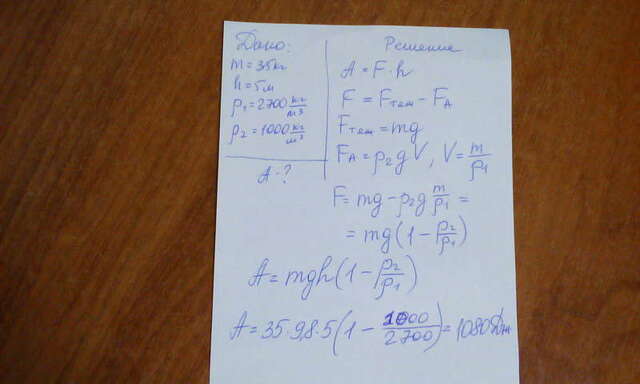 Дано:
m = 35 кг
h = 5 м
ρ₁ = 2700 кг/м³
ρ₂ = 1000 кг/м³
A - ?
Решение
A = F · h
F = Fтяж − FА
Fтяж = mg
FА = ρ₂gV, V = m/ρ₁
F = mg − ρ₂g m/ρ₁ =
= mg(1 − ρ₂/ρ₁)
A = mgh(1 − ρ₂/ρ₁)
A = 35·9,8·5(1 − 1000/2700) = 1080 Дж